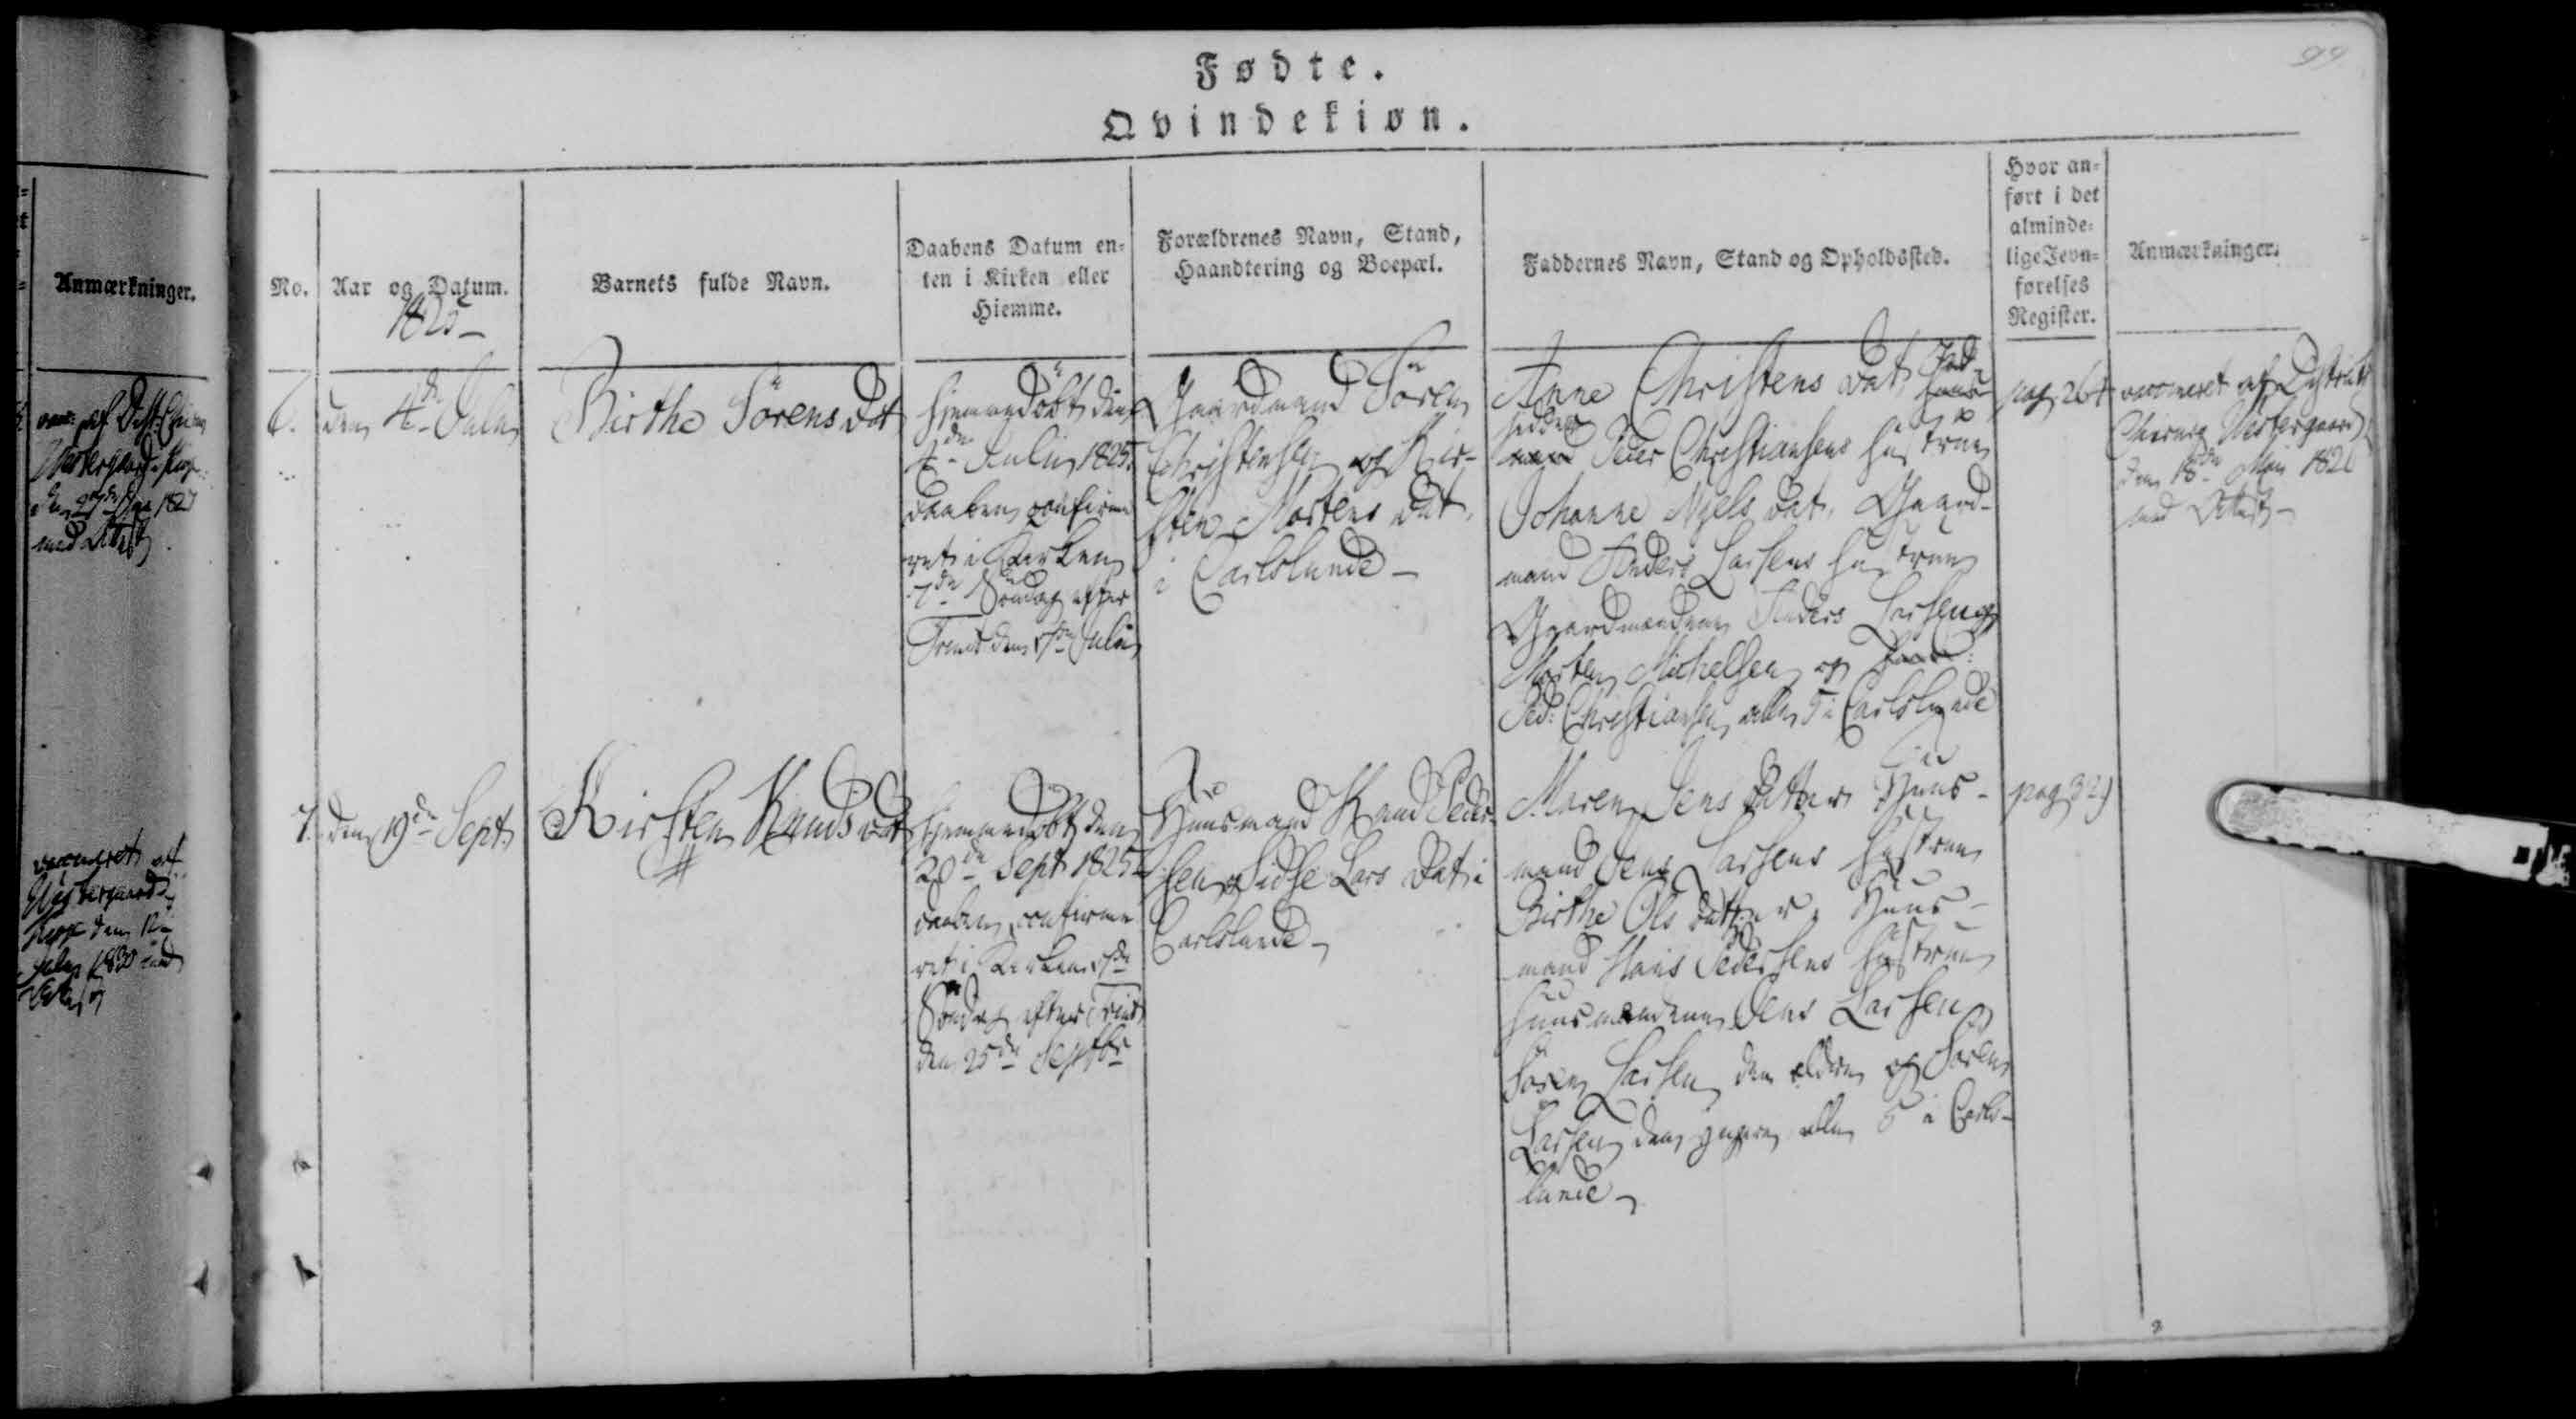 99
Fødte.
Qvindekiøn.
Anmærkninger.
med Attest
No.
Aar og Datum.
1825
Barnets fulde Navn.
Daabens Datum en-
ten i Kirken eller
Hiemme.
Forældrenes Navn, Stand,
Haandtering og Boepæl.
Faddernes Navn, Stand og Opholdssted.
Hvor an-
ført i det
alminde-
lige Jevn-
førelses
Register.
Anmærkninger.
6.
den 4de Julii
Birthe Sörens Dat
hjemmedöbt den
4de Julii 1825.
Daaben confirme
ret i Kirken
7de Söndag efter
Trinit: den Julii
Gaardmand Sören
Christensen og Kir-
sten Mortens Dat.
i Carlslunde
Anne Christens Dat,
Peder Christiansens Hustrue
Johanne Niels Dat. Gaard-
mand Anders Larsens Hustrue
Gaardmændene Anders Larsen
Morten Michelsen og
Ped: Christiansen alle 5 i Carlslunde
pag 264
vaccineret af Distrikts
Chirurg Westergaard
den 18de Mai 1826
med Attest
7.
den 19de Sept.
Kirsten Knuds Dat
hjemmedöbt den
20de Sept 1825
Daaben confirme
ret i Kirken
Söndag efter Trinit
den 25de Septbr
Huusmand Knud Peder-
sen Sidse Lars Dat i
Carlslunde
Maren Jens Datter Huus-
mand Jens Larsens Hustrue
Birthe Ols Datter, Huus-
mand Hans Pedersens Hustrue
Huusmændene Jens Larsen
Sören Larsen den ældre og Sören
Larsen den yngre alle 5 i Carls-
lunde